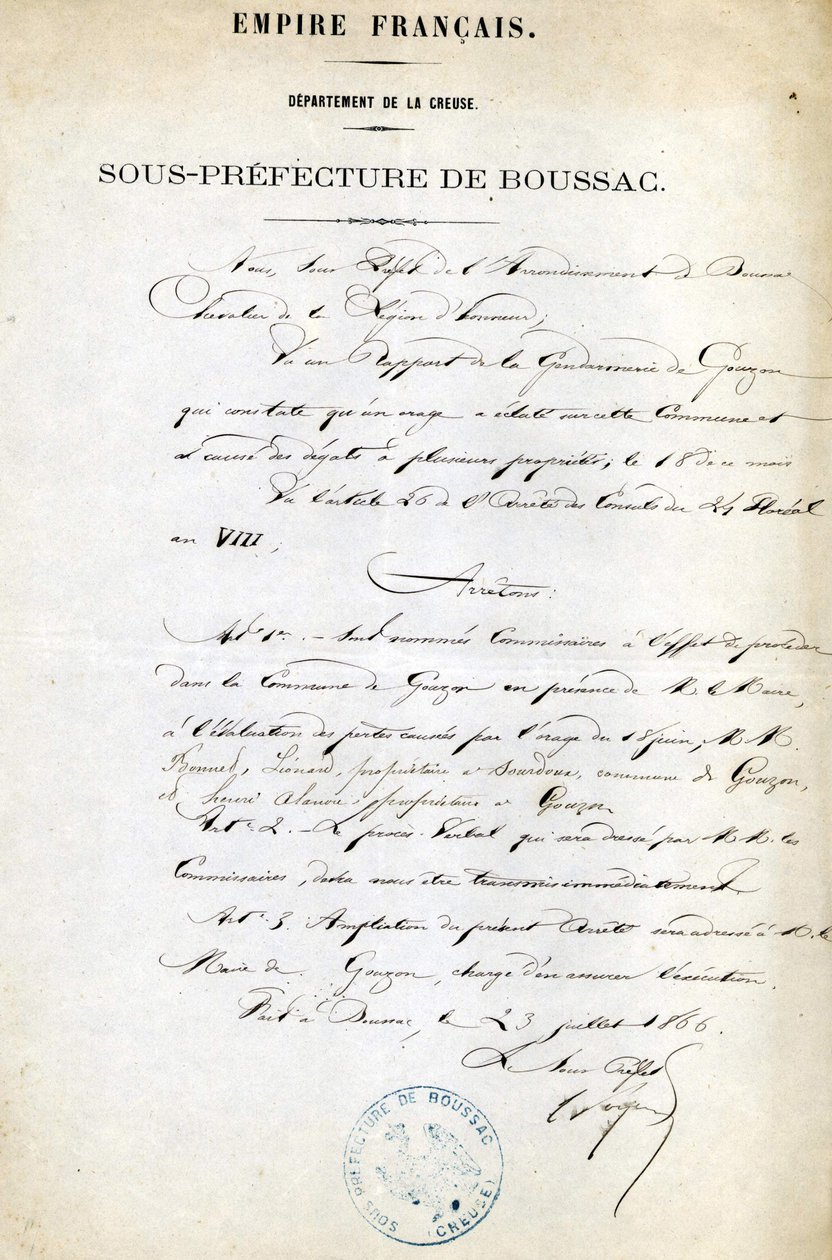 EMPIRE FRANÇAIS.
DÉPARTEMENT DE LA CREUSE.
SOUS-PRÉFECTURE DE BOUSSAC.
Nous, Sous Préfet de l'Arrondissement de Boussac
Chevalier de la Légion d'honneur;
Vu un Rapport de la Gendarmerie de Gouzon
qui constate qu'un orage a éclaté sur cette Commune et
a causé des dégats à plusieurs propriétés; le 18 de ce mois
Vu l'article 26 de l'Arrêté des Consuls du 24 Floréal
an VIII;
Arrêtons:
Art. 1er. - Sont nommés Commissaires à l'effet de procéder
dans la Commune de Gouzon en présence de M. le Maire,
à l'évaluation des pertes causées par l'orage du 18 juin, MM.
Bonnet, Léonard, propriétaire à Sourdoux, commune de Gouzon,
et henri propriétaire à Gouzon
Art. 2. - Le procès-Verbal qui sera dressé par MM. les
Commissaires, devra nous être transmis immédiatement.
Art. 3. Ampliation du présent Arrêté sera adressé à M. le
Maire de Gouzon, chargé d'en assurer l'exécution.
Fait à Boussac, le 23 juillet 1866.
Le Sous Préfet
SOUS PRÉFECTURE DE BOUSSAC
(CREUSE)